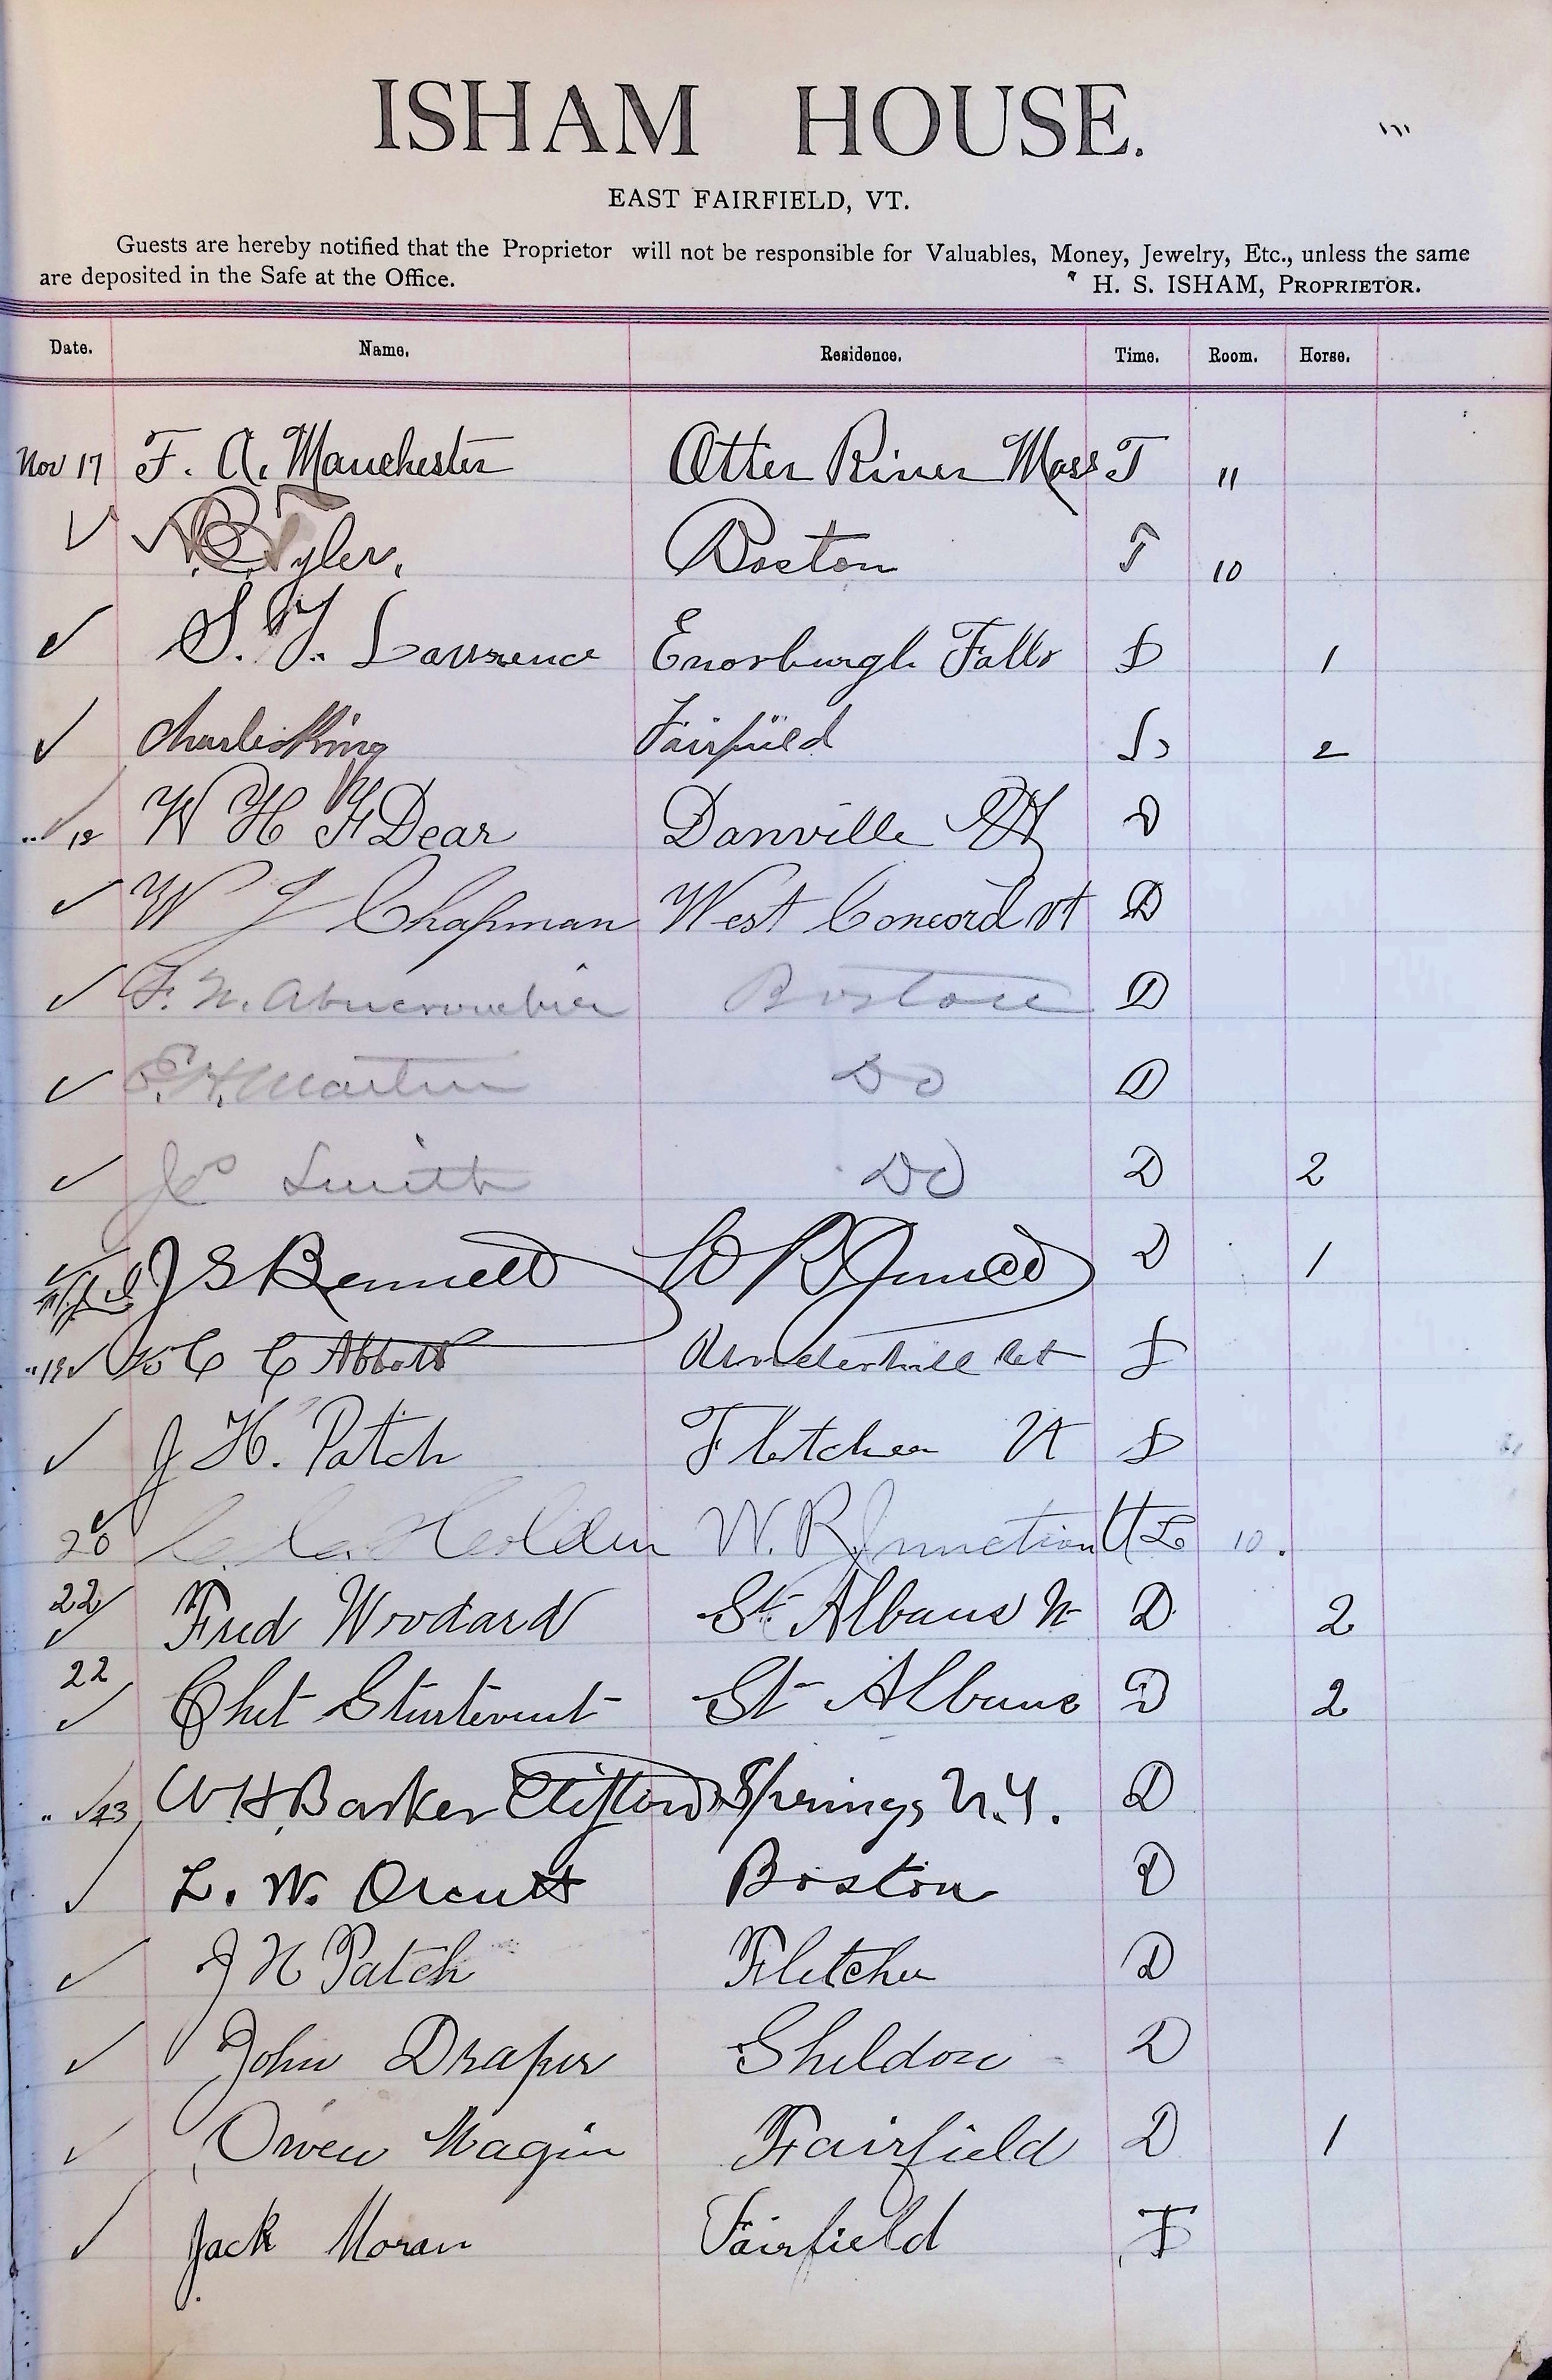 ISHAM HOUSE.
EAST FAIRFIELD, VT.
Guests are hereby notified that the Proprietor will not be responsible for Valuables, Money, Jewelry, Etc., unless the same
are deposited in the Safe at the Office. H. S. ISHAM, PROPRIETOR.
Date. Name. Residence. Time. Room. Horse.
Nov 17 F. A. Manchester Otter River Mass T 11
✓ Tyler. Boston T 10
✓ S. T. Lawrence Enosburgh Falls 1
✓ Charlie King Fairfield 2
" ✓ 18 W H H Dear Danville Vt D
✓ W J Chapman West Concord Vt D
✓ F. N. Abercrombie Boston D
✓ E. H. Martin Do D
✓ Smith Do D 2
✓ J S Bennett W R Junc D 1
" 19 ✓ C C Abbott Underhill S
✓ J H. Patch Fletcher Vt
20 ✓ C. C. Holden W. R. Junction Vt 10.
22 ✓ Fred Woodard St. Albans Vt D 2
22 ✓ Chet Sturtevant St Albans D 2
" ✓ 23 W H Barker Clifton Springs N.Y. D
✓ L. W. Orcutt Boston D
✓ J H Patch Fletcher D
✓ John Draper Sheldon D
✓ Owen Magin Fairfield D 1
✓ Jack Moran Fairfield T